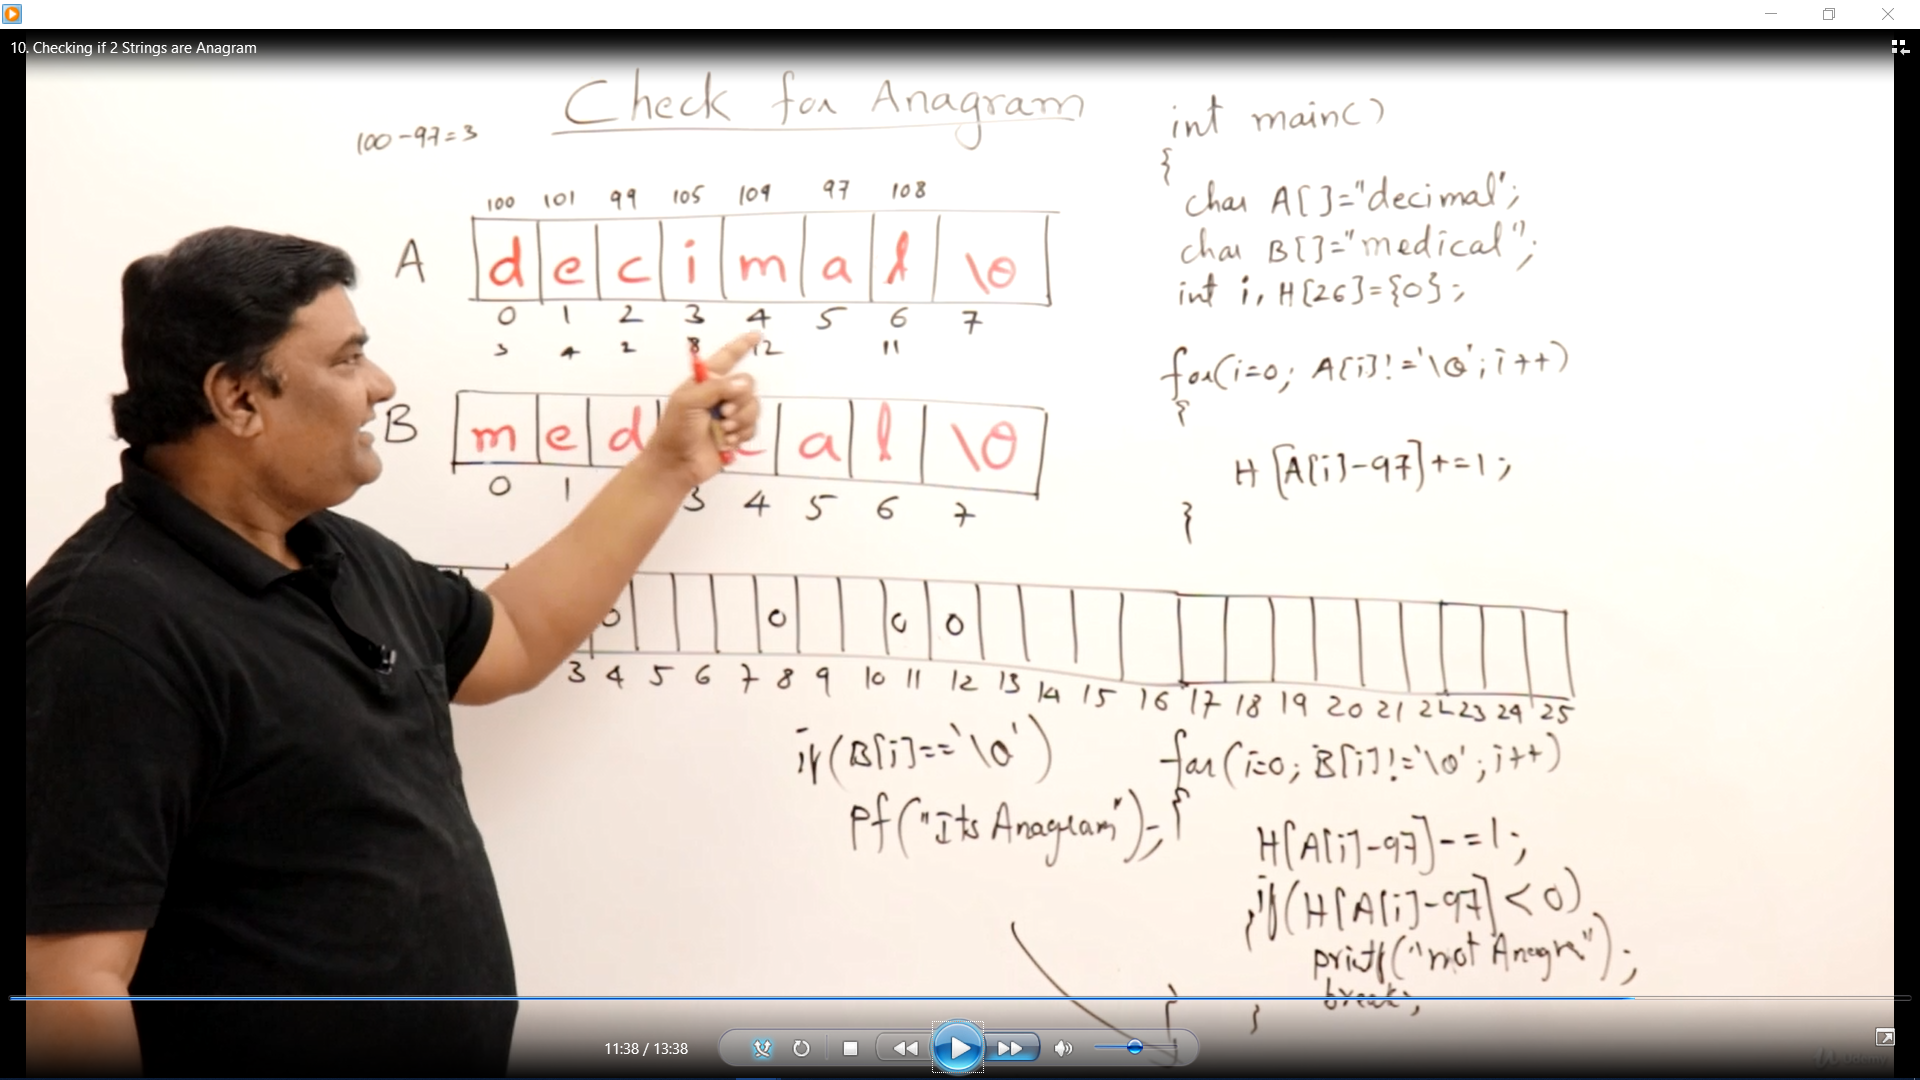 10. Checking if 2 Strings are Anagram
Check for Anagram
100-97=3
100 101 99 105 109 97 108
A d e c i m a l \0
0 1 2 3 4 5 6 7
3 4 2 8 12 11
B m e d a l \0
0 1 3 4 5 6 7
0 0 0 0
3 4 5 6 7 8 9 10 11 12 13 14 15 16 17 18 19 20 21 22 23 24 25
int main()
{
char A[]="decimal";
char B[]="medical";
int i, H[26]={0};
for(i=0; A[i]!='\0'; i++)
{
H[A[i]-97]+=1;
}
if(B[i]=='\0')
Pf("Its Anagram");
for(i=0; B[i]!='\0'; i++)
{
H[A[i]-97]-=1;
if(H[A[i]-97]<0)
{
printf("not Anagra");
break;
}
11:38 / 13:38
Udemy